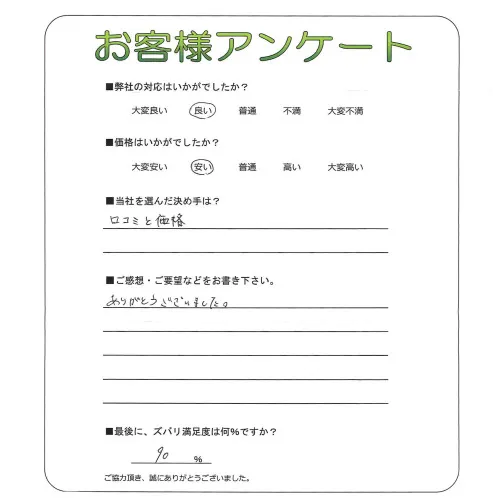 お客様アンケート
■弊社の対応はいかがでしたか？
大変良い 良い 普通 不満 大変不満
■価格はいかがでしたか？
大変安い 安い 普通 高い 大変高い
■当社を選んだ決め手は？
口コミと価格
■ご感想・ご要望などをお書き下さい。
ありがとうございました。
■最後に、ズバリ満足度は何％ですか？
90 ％
ご協力頂き、誠にありがとうございました。